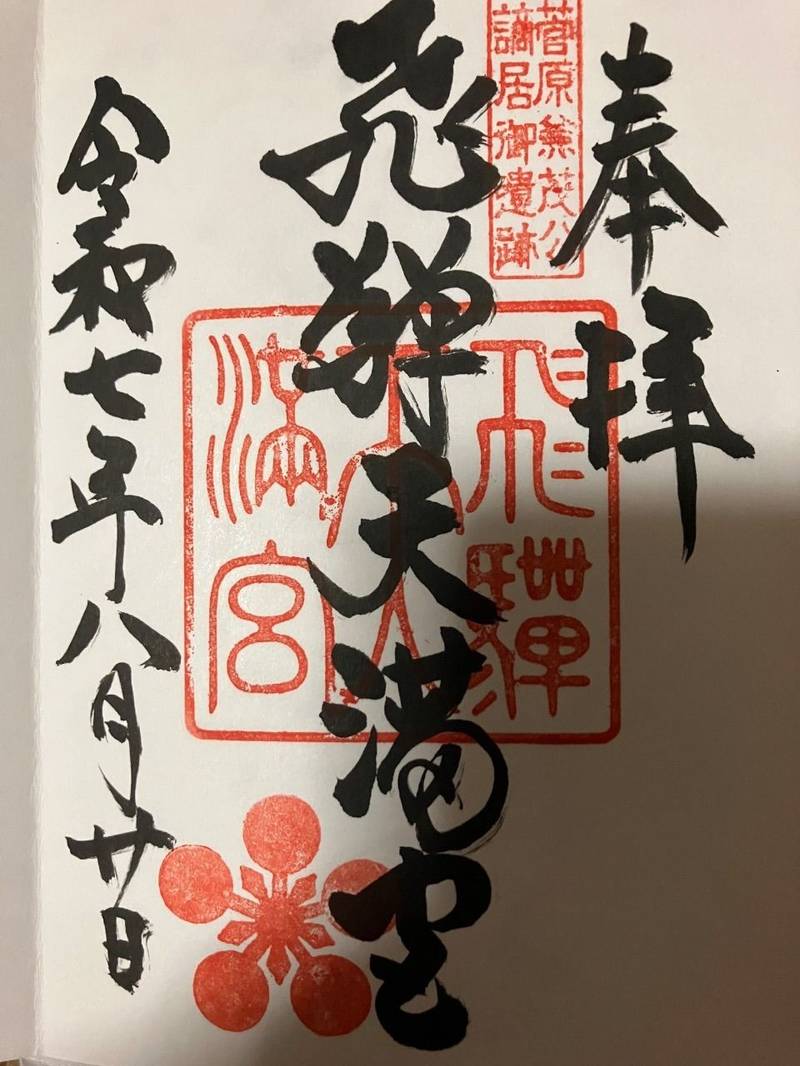 奉拝
菅原兼茂公
謫居御遺跡
飛騨天満宮
飛騨
天
満宮
令和七年八月廿日